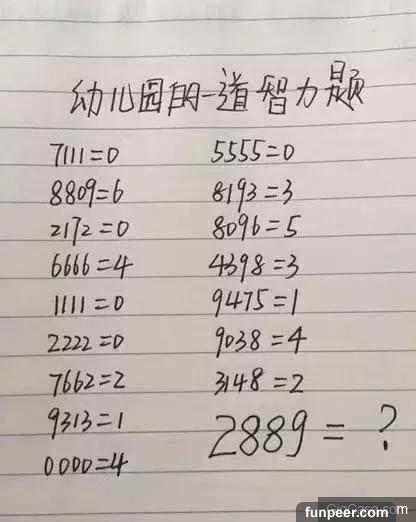 幼儿园的一道智力题
7111=0 5555=0
8809=6 8193=3
2172=0 8096=5
6666=4 4398=3
1111=0 9475=1
2222=0 9038=4
7662=2 3148=2
9313=1 2889=?
0000=4
funpeer.com